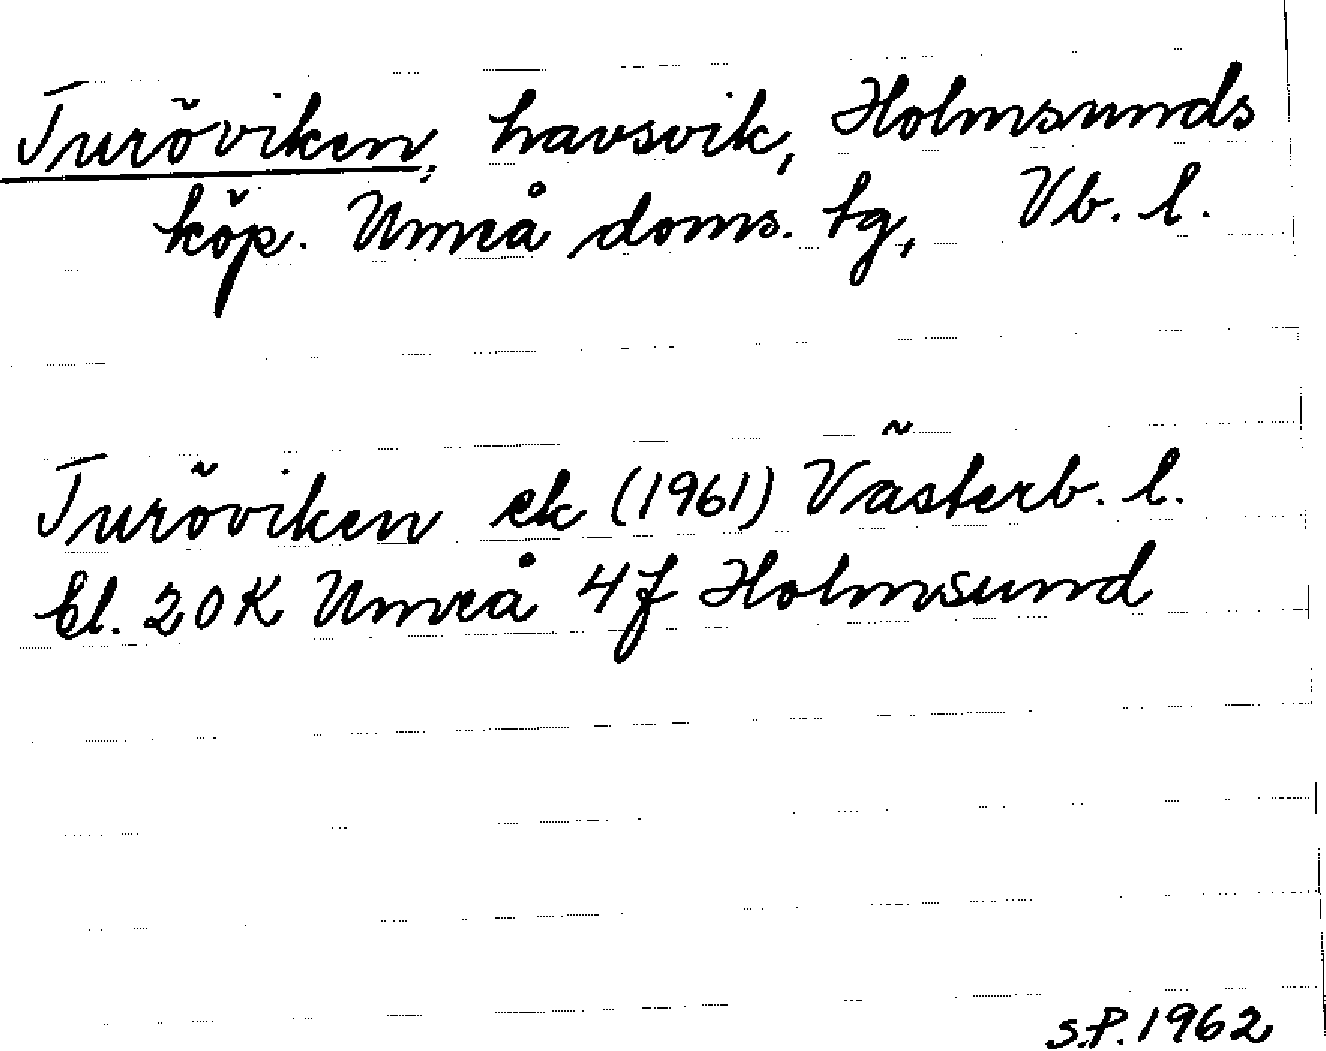 Turöviken, havsvik, Holmsunds
köp. Umeå doms. tg, Vb. l.
Turöviken ek (1961) Västerb. l.
bl. 20 K Umeå 4f Holmsund
S.P. 1962